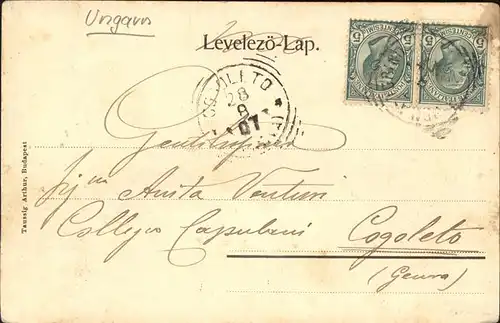 Ungarn
Levelező-Lap.
COGOLETO
28
8
07
Gentilissima
Anita Venturi
Collegio
Cogoleto
(Genova)
Taussig Arthur, Budapest